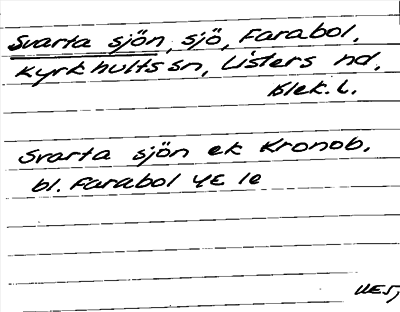 Svarta sjön, sjö, Farabol,
Kyrkhults sn, Listers hd,
Blek. l.
Svarta sjön ek Kronob.
bl. Farabol 4E 1e